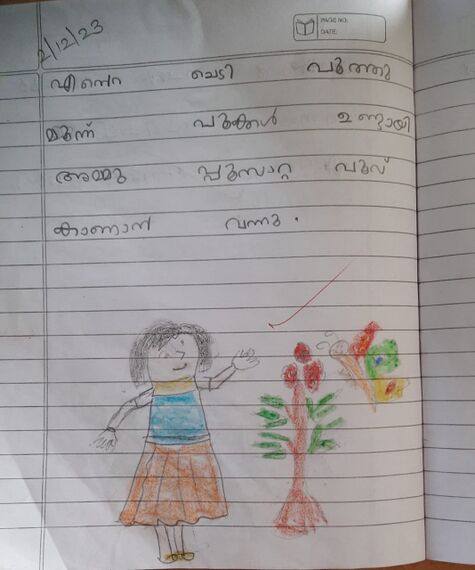 2/12/23
PAGE NO.
DATE:
എന്റെ ചെടി പൂത്തു
മൂന്ന് പൂക്കൾ ഉണ്ടായി
അമ്മു പൂമ്പാറ്റ പൂവ്
കാണാൻ വന്നു .